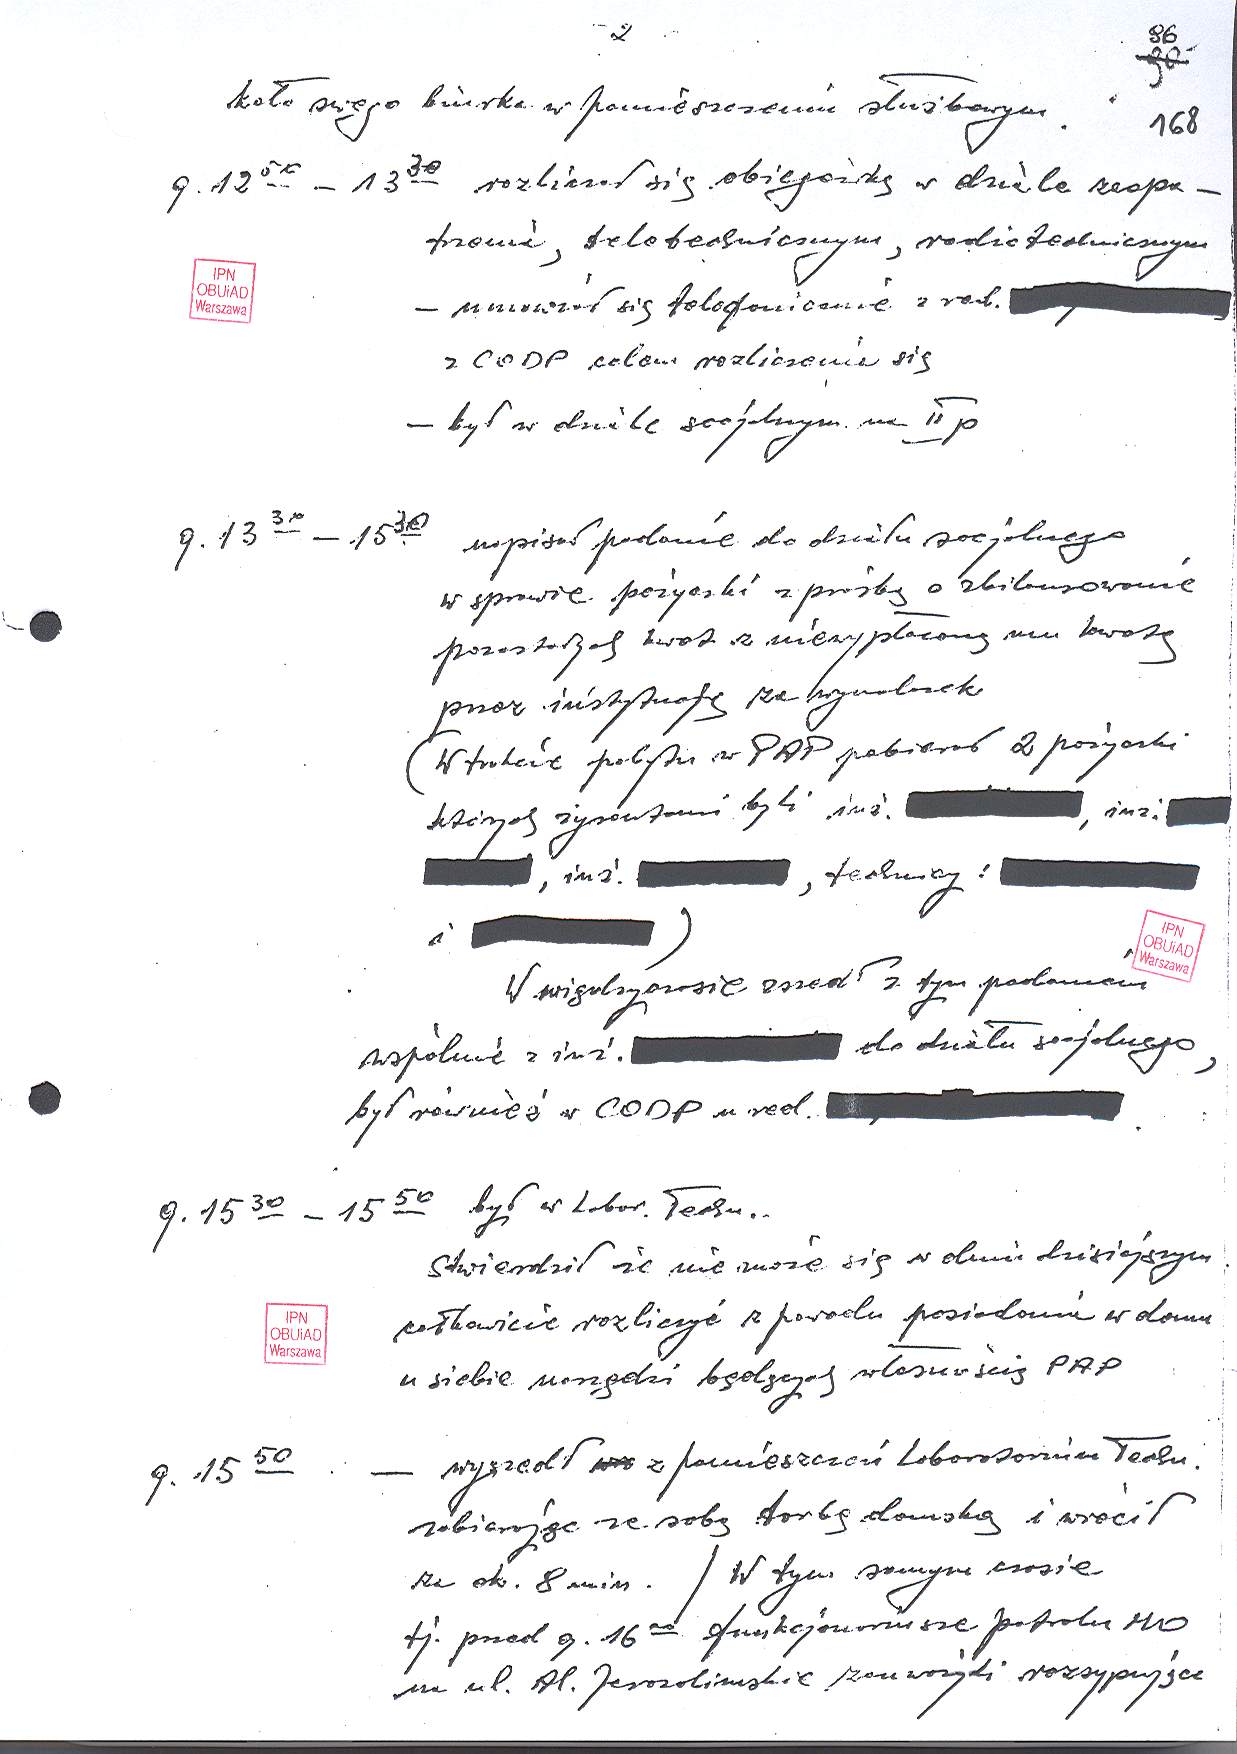 - 2 -
96
90
168
koło swego biurka w pomieszczeniu służbowym.
g. 12 50 – 13 30 rozliczał się obiegówką w dziale zaopa-
trzenia, teletechnicznym, radiotechnicznym
IPN
OBUiAD
Warszawa
– umówił się telefonicznie z red.
z CODP celem rozliczenia się
– był w dziale socjalnym na II p
g. 13 30 – 15 30 napisał podanie do działu socjalnego
w sprawie pożyczki z prośbą o zbilansowanie
pozostałych kwot z niewypłaconą mu kwotą
przez instytucję za wynalazek
(W trakcie pobytu w PAP pobierał 2 pożyczki
których żyrantami byli inż. , inż.
, inż. , technicy:
i )
IPN
OBUiAD
Warszawa
W międzyczasie zszedł z tym podaniem
wspólnie z inż. do działu socjalnego,
był również w CODP u red. .
g. 15 30 – 15 50 był w Labor. Techn..
Stwierdził że nie może się w dniu dzisiejszym
całkowicie rozliczyć z powodu posiadania w domu
IPN
OBUiAD
Warszawa
u siebie narzędzi będących własnością PAP
g. 15 50 – wyszedł z pomieszczeń Laboratorium Techn.
zabierając ze sobą torbę damską i wrócił
za ok. 8 min. / W tym samym czasie
tj. przed g. 16 00 funkcjonariusze patrolu MO
na ul. Al. Jerozolimskie zauważyli rozsypujące